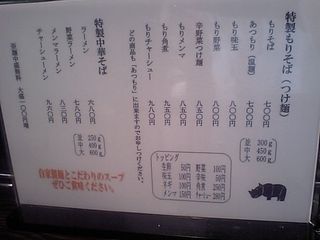 特製もりそば（つけ麺）
もりそば 七〇〇円
あつもり（温麺） 七〇〇円
もり味玉 八〇〇円
もり野菜 八〇〇円
辛野菜つけ麺 八五〇円
もりメンマ 八五〇円
もり角煮 九五〇円
もりチャーシュー 九八〇円
どの商品も「あつもり」に出来ますのでお申しつけください。
並 300g
中 450g
大 600g
特製中華そば
ラーメン 六八〇円
野菜ラーメン 七八〇円
メンマラーメン 八三〇円
チャーシューメン 九六〇円
並 250g
中 400g
大 600g
トッピング
生卵 50円 野菜 100円
味玉 100円 辛味 50円
ネギ 100円 角煮 250円
メンマ 150円 チャーシュー 280円
自家製麺とこだわりのスープ
ぜひご賞味ください。